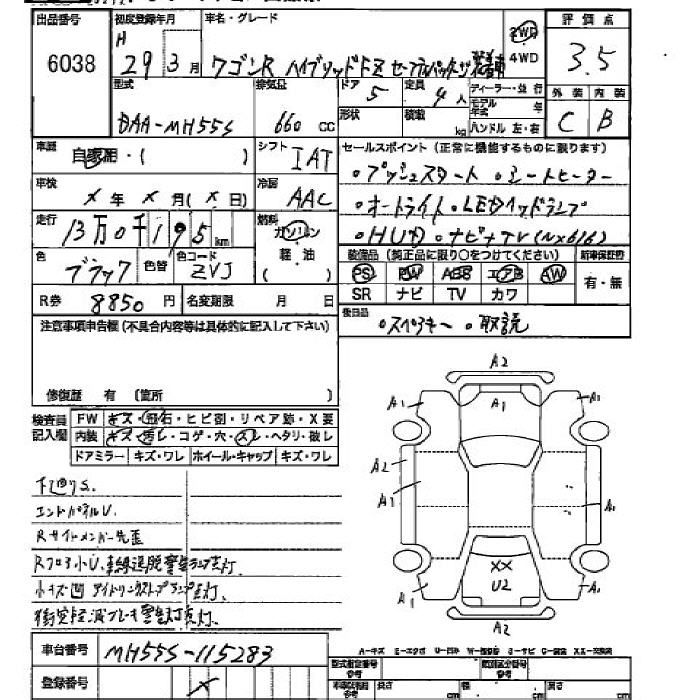 出品番号 初度登録年月 車名・グレード 評価点
6038 H 29年3月 ワゴンR ハイブリッドFZ セーフティパッケージ装着車 2WD 4WD 3.5
型式 排気量 ドア 定員 ディーラー・並行 外装 内装
DAA-MH55S 660 cc 5 4人 モデル年式 年 C B
形状 積載 kg ハンドル 左・右
車歴 自家用・( ) シフト IAT セールスポイント (正常に機能するものに限ります)
車検 X年X月(X日) 冷房 AAC 。プッシュスタート 。シートヒーター
走行 13万0千195km 燃料 ガソリン 軽・油 ( ) 。オートライト 。LEDヘッドランプ
。HUD 。ナビ+TV(NX616)
色 ブラック 色替 色コード ZVJ 装備品 (純正品に限り○をつけてください) 新車保証書
PS PW ABS エアB AW 有・無
R券 8850円 名変期限 月 日 SR ナビ TV カワ
注意事項申告欄(不具合内容等は具体的に記入して下さい) 後日品 。スペアキー 。取説
修復歴 有 (箇所 )
検査員記入欄 FW キズ・飛石・ヒビ割・リペア跡・X要
内装 キズ・汚レ・コゲ・穴・スレ・ヘタリ・破レ
ドアミラー キズ・ワレ ホイール・キャップ キズ・ワレ
A2
A1 A1 A1
A2
A1 A1
XX
U2
A1 A1
A2
下回りS.
エンドパネルU.
Rサイドメンバー先歪
Rフロア小U. 車線逸脱警告ランプ点灯.
小キズ凹 アイドリングストップランプ点灯.
衝突軽減ブレーキ警告灯点灯.
A-キズ E-エクボ U-凹ミ W-補修跡 S-サビ C-腐蝕 XX-交換済
車台番号 MH55S-115283
登録番号 X
型式指定番号 参考 類別区分番号 参考
長さ cm 幅 cm 高さ cm